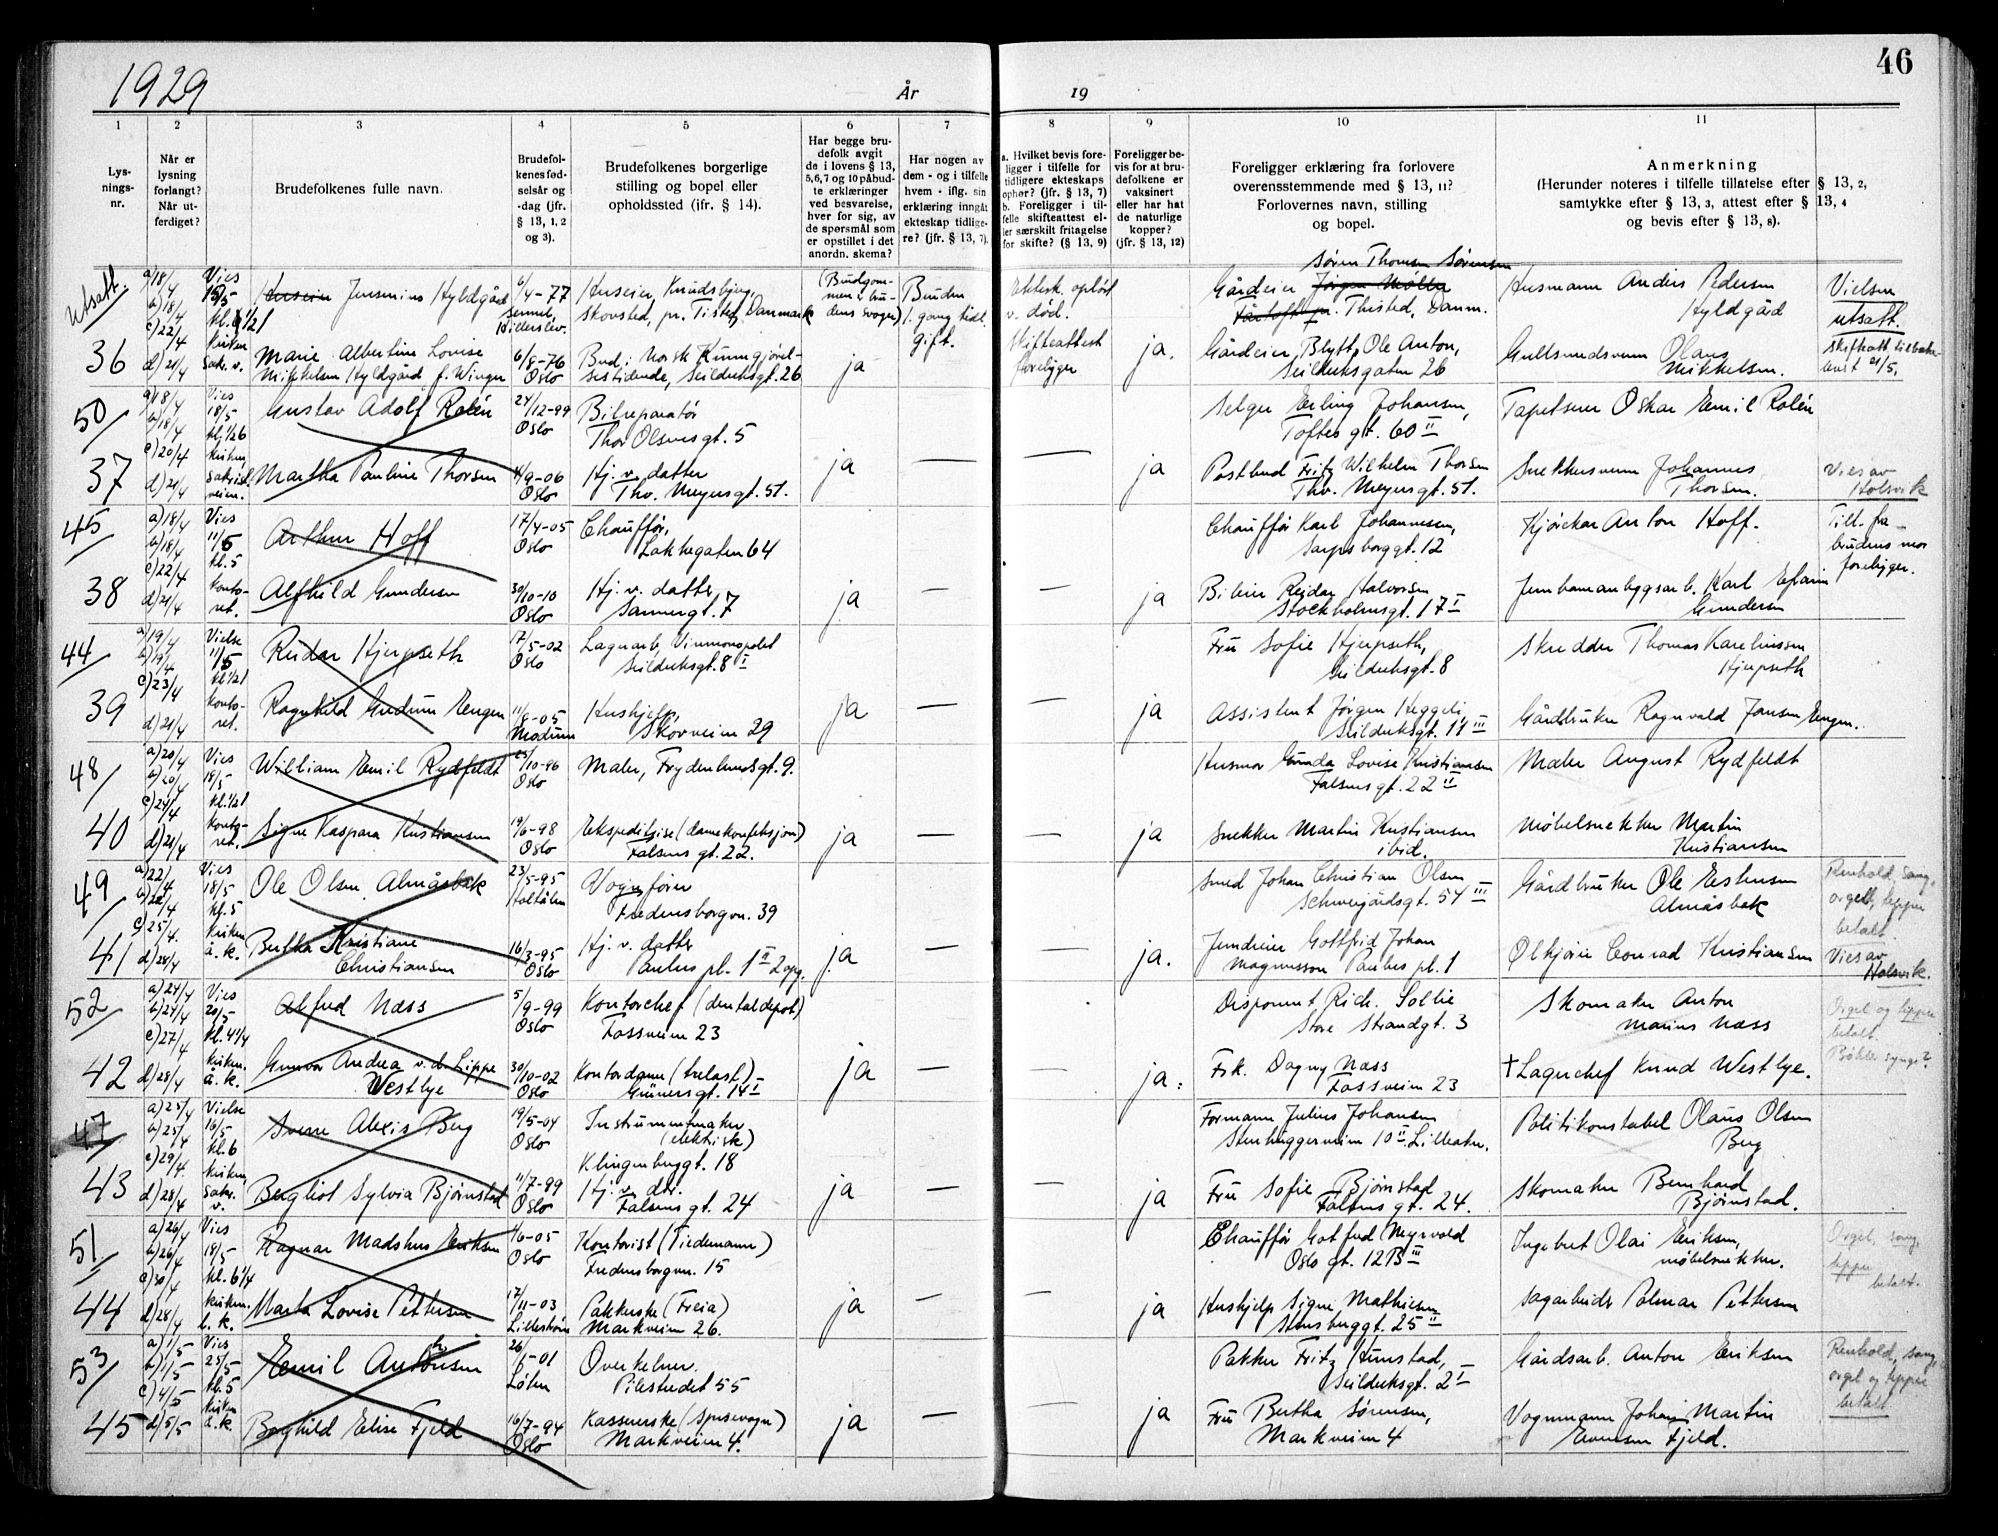 1929
År
19
46
1
2
3
4
5
6
7
8
9
10
11
Lys-
nings-
nr.
Når er
lysning
forlangt?
Når ut-
ferdiget?
Brudefolkenes fulle navn.
Brudefol-
kenes fød-
selsår og
-dag (jfr.
§ 13, 1, 2
og 3).
Brudefolkenes borgerlige
stilling og bopel eller
opholdssted (ifr. § 14).
Har begge bru-
defolk avgit
de i lovens § 13,
5, 6, 7 og 10 påbud-
te erklæringer
ved besvarelse,
hver for sig, av
de spørsmål som
er opstillet i det
anordn. skema?
Har nogen av
dem - og i tilfelle
hvem - iflg. sin
erklæring inngåt
ekteskap tidlige-
re? (jfr. § 13, 7).
a. Hvilket bevis fore-
ligger i tilfelle for
tidligere ekteskaps
ophør? (jfr. § 13, 7)
b. Foreligger i til-
felle skifteattest el-
ler særskilt fritagelse
for skifte? (§ 13, 9)
Foreligger be-
vis for at bru-
defolkene er
vaksinert
eller har hat
de naturlige
kopper?
(jfr. § 13, 12)
Foreligger erklæring fra forlovere
overensstemmende med § 13, 11?
Forlovernes navn, stilling
og bopel.
Anmerkning
(Herunder noteres i tilfelle tillatelse efter § 13, 2,
samtykke efter § 13, 3, attest efter § 13, 4
og bevis efter § 13, 8).
Utsatt.
36
a) 18/4
b) 18/4
c) 22/4
d) 21/4
Vies
15/5
kirken
Jensenius Hyldgård
6/4-77
Huseier, Knudsbjerg,
Skovsted, pr. Tisted, Danmark
Bruden
1. gang tidl.
gift.
Ektesk. opløst
v. død.
Skifteattest
foreligger
Søren Thomsen Sørensen
Gårdeier
Thisted, Danm.
Husmann Anders Pedersen
Hyldgård
Vielsen
utsatt.
Marie Albertine Lovise
Mikkelsen Hyldgård f. Winger
6/8-76
Oslo
Bud i Norsk Kunngjørel-
sestidende, Seilduksgt. 26
ja
ja.
Gårdeier Blytt, Ole Anton,
Seilduksgaten 26
Gullsmedsvenn Olaus
Mikkelsen.
50
37
a) 18/4
b) 18/4
c) 20/4
d) 21/4
Vies
18/5
kirken
Gustav Adolf Rolén
24/12-99
Oslo
Bilreparatør
Thor Olsensgt. 5
Selger Erling Johansen,
Toftes gt. 60 II
Tapetserer Oskar Emil Rolén
Martha Pauline Thorsen
4/9-06
Oslo
Hj. v. datter
Thv. Meyersgt. 51.
ja
—
—
ja
Postbud Fritz Wilhelm Thorsen
Thv. Meyersgt. 51.
Snekkersvenn Johannes
Thorsen.
Vies av
Holsvik
45
38
a) 18/4
b) 18/4
c) 22/4
d) 21/4
Vies
11/5
kl. 5
konto-
ret.
Arthur Hoff
17/4-05
Oslo
Chauffør,
Lakkegaten 64
Chauffør Karl Johannessen,
Sarpsborggt. 12
Kjørekar Anton Hoff.
Till. fra
brudens mor
foreligger.
Alfhild Gundersen
30/10-10
Oslo
Hj. v. datter
Sannergt. 7
ja
—
—
ja
Bileier Reidar Halvorsen
Stockholmsgt. 17 I
Jernbaneanbygsarb. Karl Efraim
Gundersen
44
39
a) 19/4
b) 19/4
c) 23/4
d) 21/4
Vielse
11/5
konto-
ret.
Reidar Hjerpseth
17/5-02
Oslo
Lagerarb. Vinmonopolet
Seilduksgt. 8 I
Fru Sofie Hjerpseth,
Seilduksgt. 8
Skredder Thomas Karelinssen
Hjerpseth
Ragnhild Gudrun Engen
11/8-05
Modum
Hushjelp,
Skovveien 29
ja
—
—
ja
Assistent Jørgen Heggeli,
Seilduksgt. 11 III
Gårdbruker Ragnvald Jansen Engen.
48
40
a) 20/4
b) 20/4
c) 24/4
d) 21/4
Vies
18/5
konto-
ret.
William Emil Rydfeldt
25/10-96
Oslo
Maler, Frydenlundsgt. 9.
Husmor Gunda Lovise Kristiansen
Falsensgt. 22 II
Maler August Rydfeldt
Signe Kaspara Kristiansen
19/6-98
Oslo
Ekspeditrise (damekonfeksjon)
Falsens gt. 22.
ja
—
—
ja
Snekker Martin Kristiansen
ibid.
Møbelsnekker Martin
Kristiansen
49
41
a) 22/4
b) 22/4
c) 25/4
d) 28/4
Vies
18/5
kl. 5
kirken
å. k.
Ole Olsen Almåsbak
23/5-95
Holtålen
Vognfører
Fredensborgvn. 39
Smed Johan Christian Olsen
Schweigårdsgt. 54 III
Gårdbruker Ole Estensen
Almåsbak
Renhold, sang,
orgel, tepper
betalt.
Bertha Kristiane
Christiansen
16/3-95
Oslo
Hj. v. datter
Paulus pl. 1 II 2 opg.
ja
—
—
ja.
Jerndreier Gottfrid Johan
Magnusson Paulus pl. 1
Ølkjører Conrad Kristiansen
Vies av
Holsvik.
52
42
a) 24/4
b) 24/4
c) 27/4
d) 28/4
Vies
20/5
kirken
å. k.
Alfred Næss
5/9-99
Oslo
Kontorchef (dentaldepot)
Fossveien 23
Disponent Rich. Sollie
Store Strandgt. 3
Skomaker Anton
Marius Næss
Orgel og tepper
betalt.
Gunvor Andrea v. d. Lippe
Westbye
30/10-02
Oslo
Kontordame (trelast)
Grünersgt. 14 I
ja
—
ja
Frk. Dagny Næss
Fossveien 23
† Lagerchef Knud Westbye.
47
43
a) 25/4
b) 25/4
c) 29/4
d) 28/4
Vielse
16/5
kl. 6
kirken
Sverre Alexis Berg
19/5-04
Oslo
Instrumentmaker
(elektrisk)
Klingenberggt. 18
Formann Julius Johansen
Stenhuggerveien 10 II Lilleaker.
Politikonstabel Olaus Olsen
Berg
Bergliot Sylvia Bjørnstad
11/7-99
Oslo
Hj. v. dtr.
Falsens gt. 24
ja
—
—
ja
Fru Sofie Bjørnstad
Falsens gt. 24.
Skomaker Bernhard
Bjørnstad.
51
44
a) 26/4
b) 26/4
c) 30/4
d) 28/4
Vies
18/5
kl. 6 1/4
kirken
Ragnar Madshus Eriksen
Oslo
Kontorist (Tiedemann)
Fredensborgvn. 15
Chauffør Gotfred Myrvold
Oslo gt. 12 B III
Ingebret Olai Eriksen,
møbelsnekker.
Orgel, sang,
tepper
betalt.
Marta Lovise Pettersen
17/11-03
Lillestrøm
Pakkerske (Freia)
Markveien 26.
ja
—
—
ja
Hushjelp Signe Mathiesen
Stensberggt. 25 II
Sagarbeider Polmar Pettersen
53
45
a) 1/5
b) 1/5
c) 4/5
d) 5/5
Vies
25/5
kl. 5
kirken
å. k.
Emil Antonsen
Løten
Overkelner.
Pilestredet 55
Pakker Fritz Hunstad,
Seilduksgt. 2 I
Gårdsarb. Anton Eriksen
Renhold, sang,
orgel og tepper
betalt.
Borghild Elise Fjeld
16/7-94
Oslo
Kassererske (Spisevogn)
Markveien 4.
ja
—
—
ja
Fru Bertha Sørensen,
Markveien 4
Vognmann Johan Martin
Evensen Fjeld.